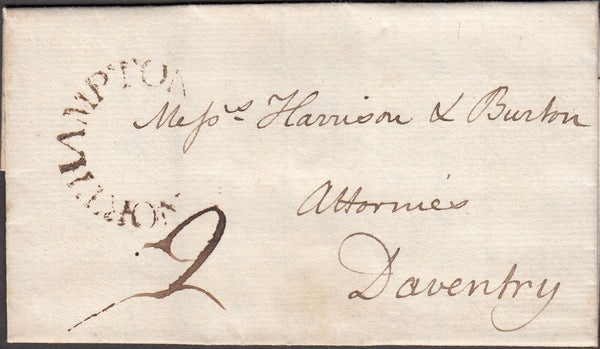 NORTHAMPTON
Mess.rs Harrison & Burton
Attornies
Daventry
2